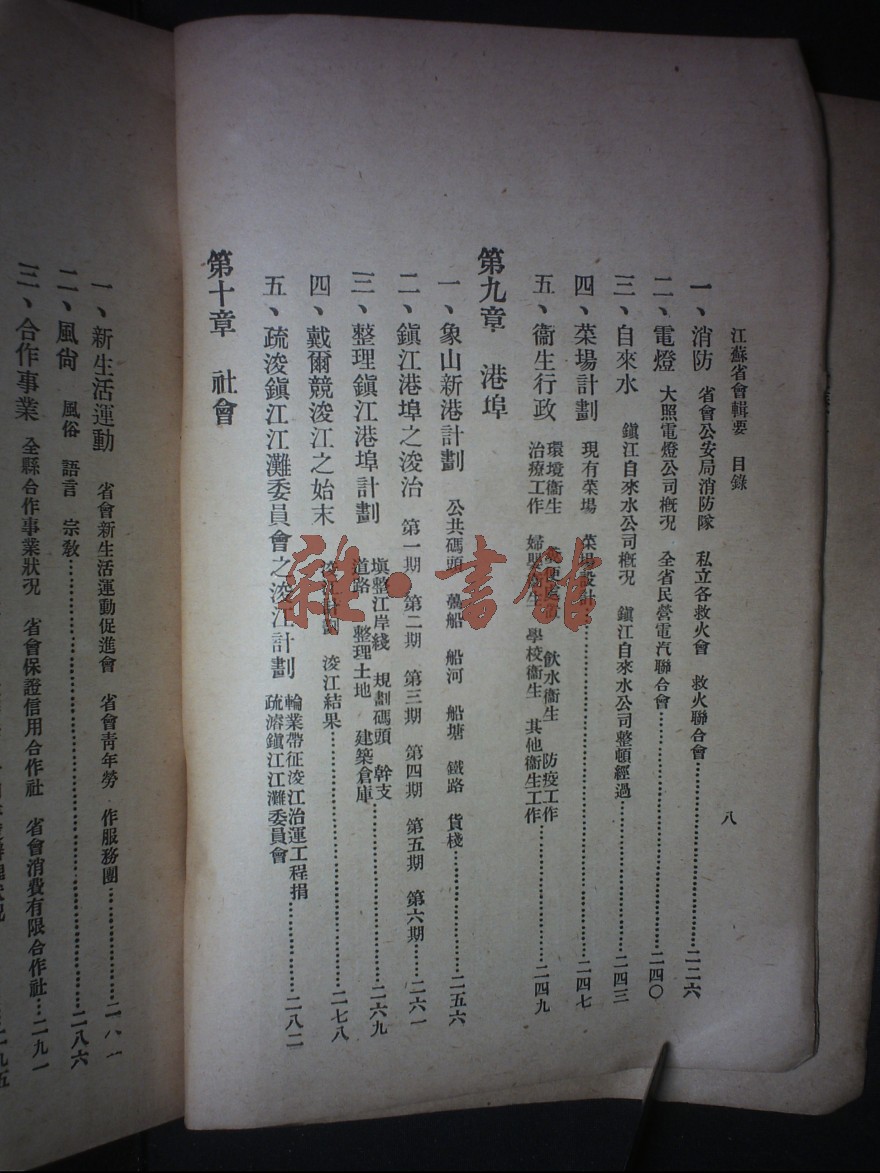 江蘇省會輯要 目錄 八
一、消防 省會公安局消防隊 私立各救火會 救火聯合會……二二六
二、電燈 大照電燈公司概況 全省民營電汽聯合會……二四〇
三、自來水 鎮江自來水公司概況 鎮江自來水公司整頓經過……二四三
四、菜場計劃 現有菜場 菜場設計……二四七
五、衞生行政 環境衞生 飲水衞生 防疫工作
治療工作 婦嬰衞生 學校衞生 其他衞生工作……二四九
第九章 港埠
一、象山新港計劃 公共碼頭 躉船 船河 船塘 鐵路 貨棧……二五六
二、鎮江港埠之浚治 第一期 第二期 第三期 第四期 第五期 第六期……二六一
三、整理鎮江港埠計劃 填整江岸綫 規劃碼頭 幹支
道路 整理土地 建築倉庫……二六九
四、戴爾競浚江之始末 浚江計劃 浚江結果……二七八
五、疏浚鎮江江灘委員會之浚江計劃 輪業帶征浚江治運工程捐
疏濬鎮江江灘委員會……二八二
第十章 社會
一、新生活運動 省會新生活運動促進會 省會青年勞 作服務團……二八
二、風尙 風俗 語言 宗敎……二八六
三、合作事業 全縣合作事業狀況 省會保證信用合作社 省會消費有限合作社…二九一
雜·書館